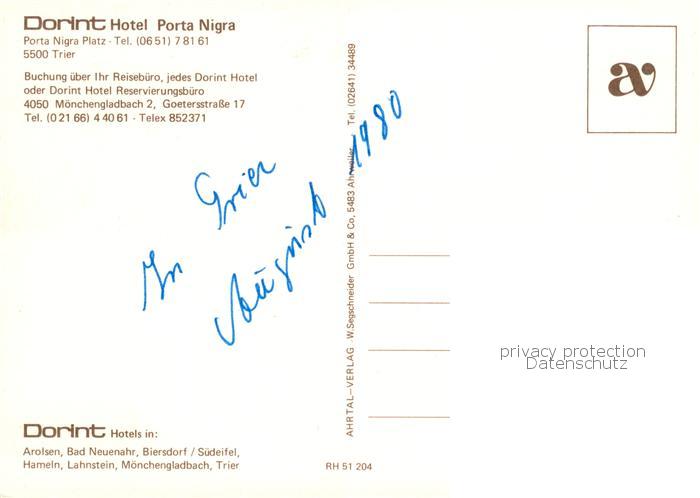 Dorint Hotel Porta Nigra
Porta Nigra Platz · Tel. (06 51) 7 81 61
5500 Trier
Buchung über Ihr Reisebüro, jedes Dorint Hotel
oder Dorint Hotel Reservierungsbüro
4050 Mönchengladbach 2, Goetersstraße 17
Tel. (0 21 66) 4 40 61 · Telex 852371
In Trier
August 1980
AHRTAL–VERLAG · W. Segschneider GmbH & Co, 5483 Ahrweiler Tel. (02641) 34489
av
privacy protection
Datenschutz
Dorint Hotels in:
Arolsen, Bad Neuenahr, Biersdorf / Südeifel,
Hameln, Lahnstein, Mönchengladbach, Trier
RH 51 204